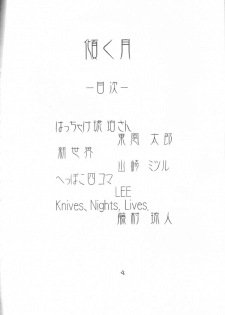 傾く月
―目次―
はっちゃけ琥珀さん
東原 太郎
新世界
山崎 ミツル
へっぽこ四コマ
LEE
Knives, Nights, Lives,
藤村 琉人
4